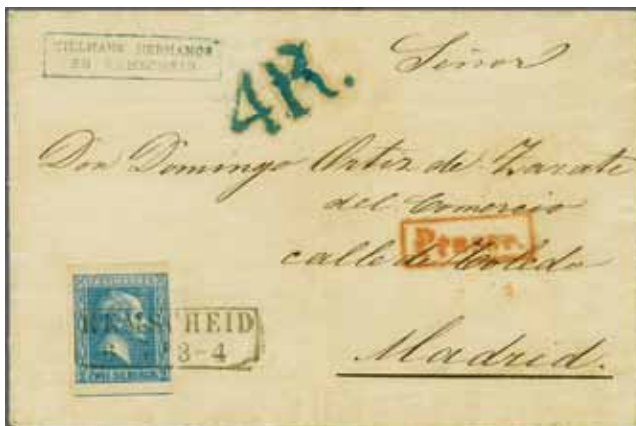 TILLMANN HERMANOS
EN REMSCHEID.
4R.
Señor
Don Domingo Ortiz de Zarate
del Comercio
calle de Toledo
REMSCHEID
3-4
Madrid.